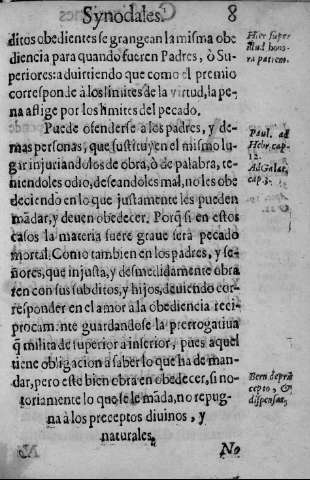 Synodales. 8
ditos obedientes se grangean la misma obe
diencia para quando fueren Padres, ò Su-
periores: aduirtiendo que como el premio
corresponde à los limites de la virtud, la pe-
na aflige por los limites del pecado.
Puede ofenderse a los padres, y de-
mas personas, que sustituyen el mismo lu-
gar injuriandolos de obra, ò de palabra, te-
niendoles odio, deseandoles mal, no les obe
deciendo en lo que justamente les pueden
mādar, y deuen obedecer. Porq̃ si en estos
casos la materia fuere graue serà pecado
mortal. Como tambien en los padres, y se-
ñores, que injusta, y desmedidamente obra
ren con sus subditos, y hijos, deuiendo cor-
responder en el amor à la obediencia reci-
procamente guardandose la prerrogatiua
q̃ milita de superior a inferior, pues aquel
tiene obligacion a saber lo que ha de man-
dar, pero este bien obra en obedecer, si no-
toriamente lo que se le māda, no repug-
na à los preceptos diuinos, y
naturales.
No
Hier super
illud hono-
ra patrem.
Paul. ad
Hebr. cap.
12.
Ad Galat,
cap. 3.
Bern de præ
cepto, &
dispensat,